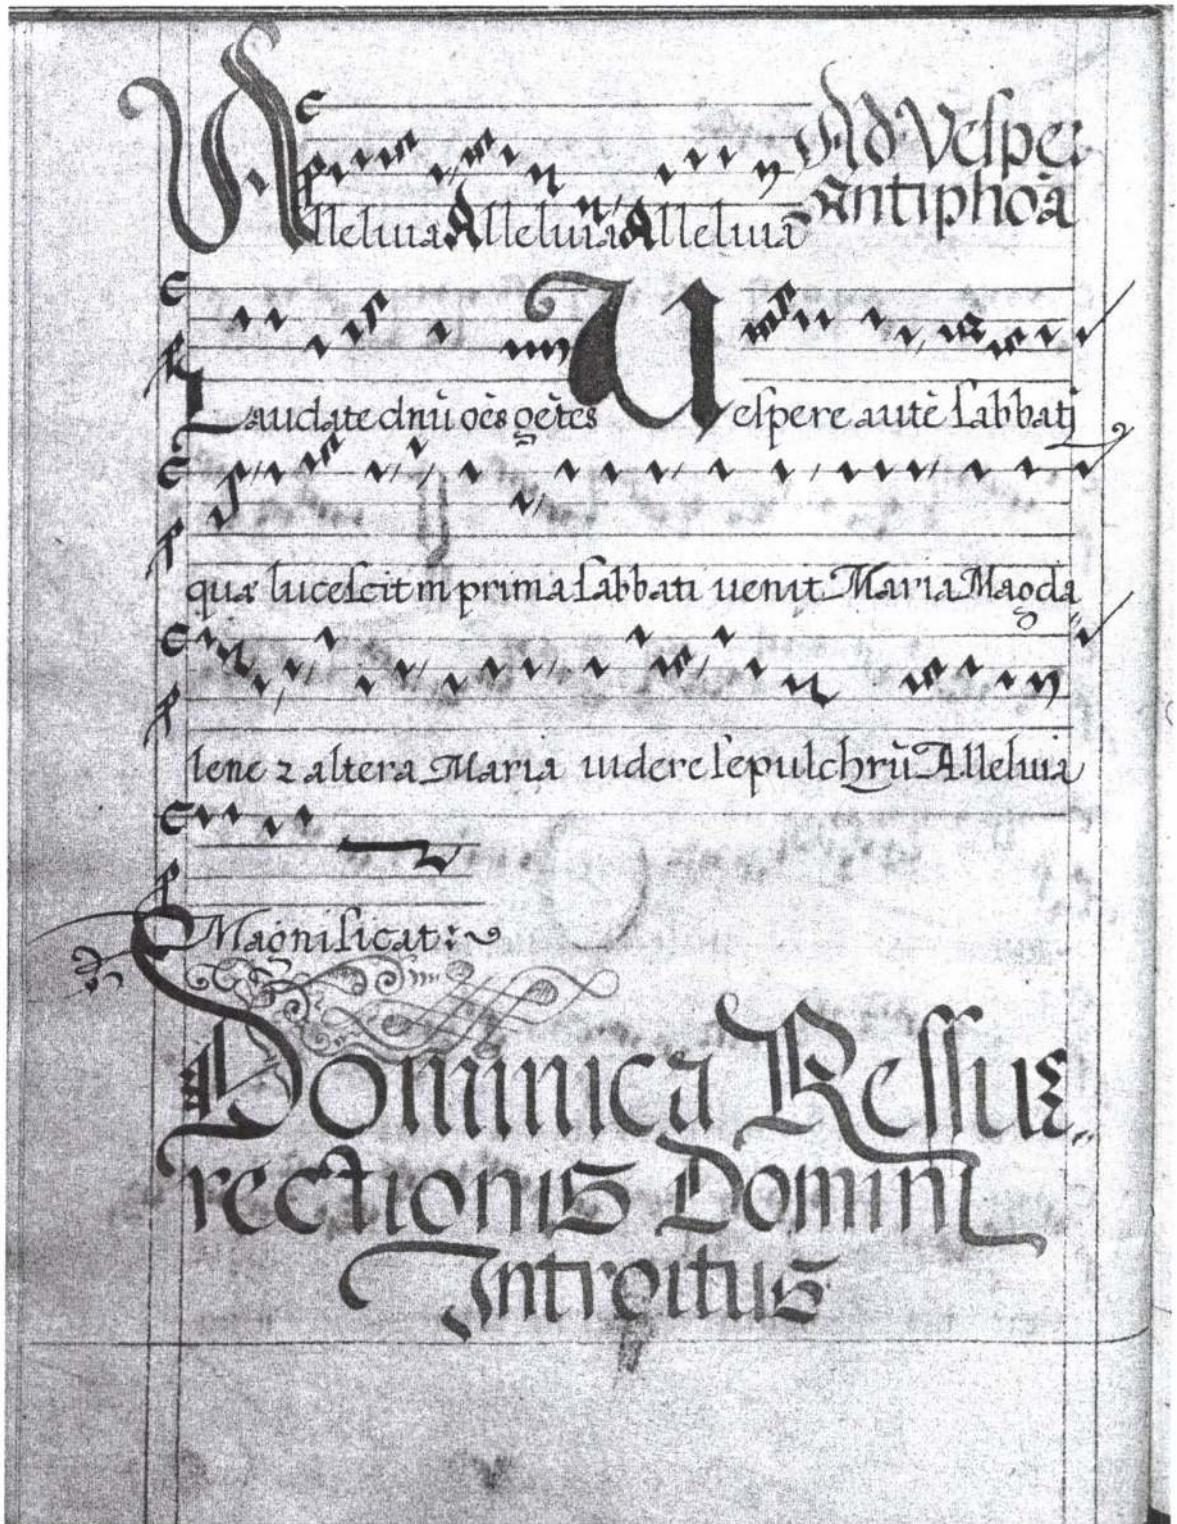 Alleluia Alleluia Alleluia
Ad Vespe:
Antiphoã
Laudate dnũ oẽs gẽtes Vespere autẽ sabbati
quæ lucescit in prima sabbati uenit Maria Magda
lene z altera Maria uidere sepulchrũ Alleluia
Magnificat:~
Dominica Ressur-
rectionis Domini
Introitus